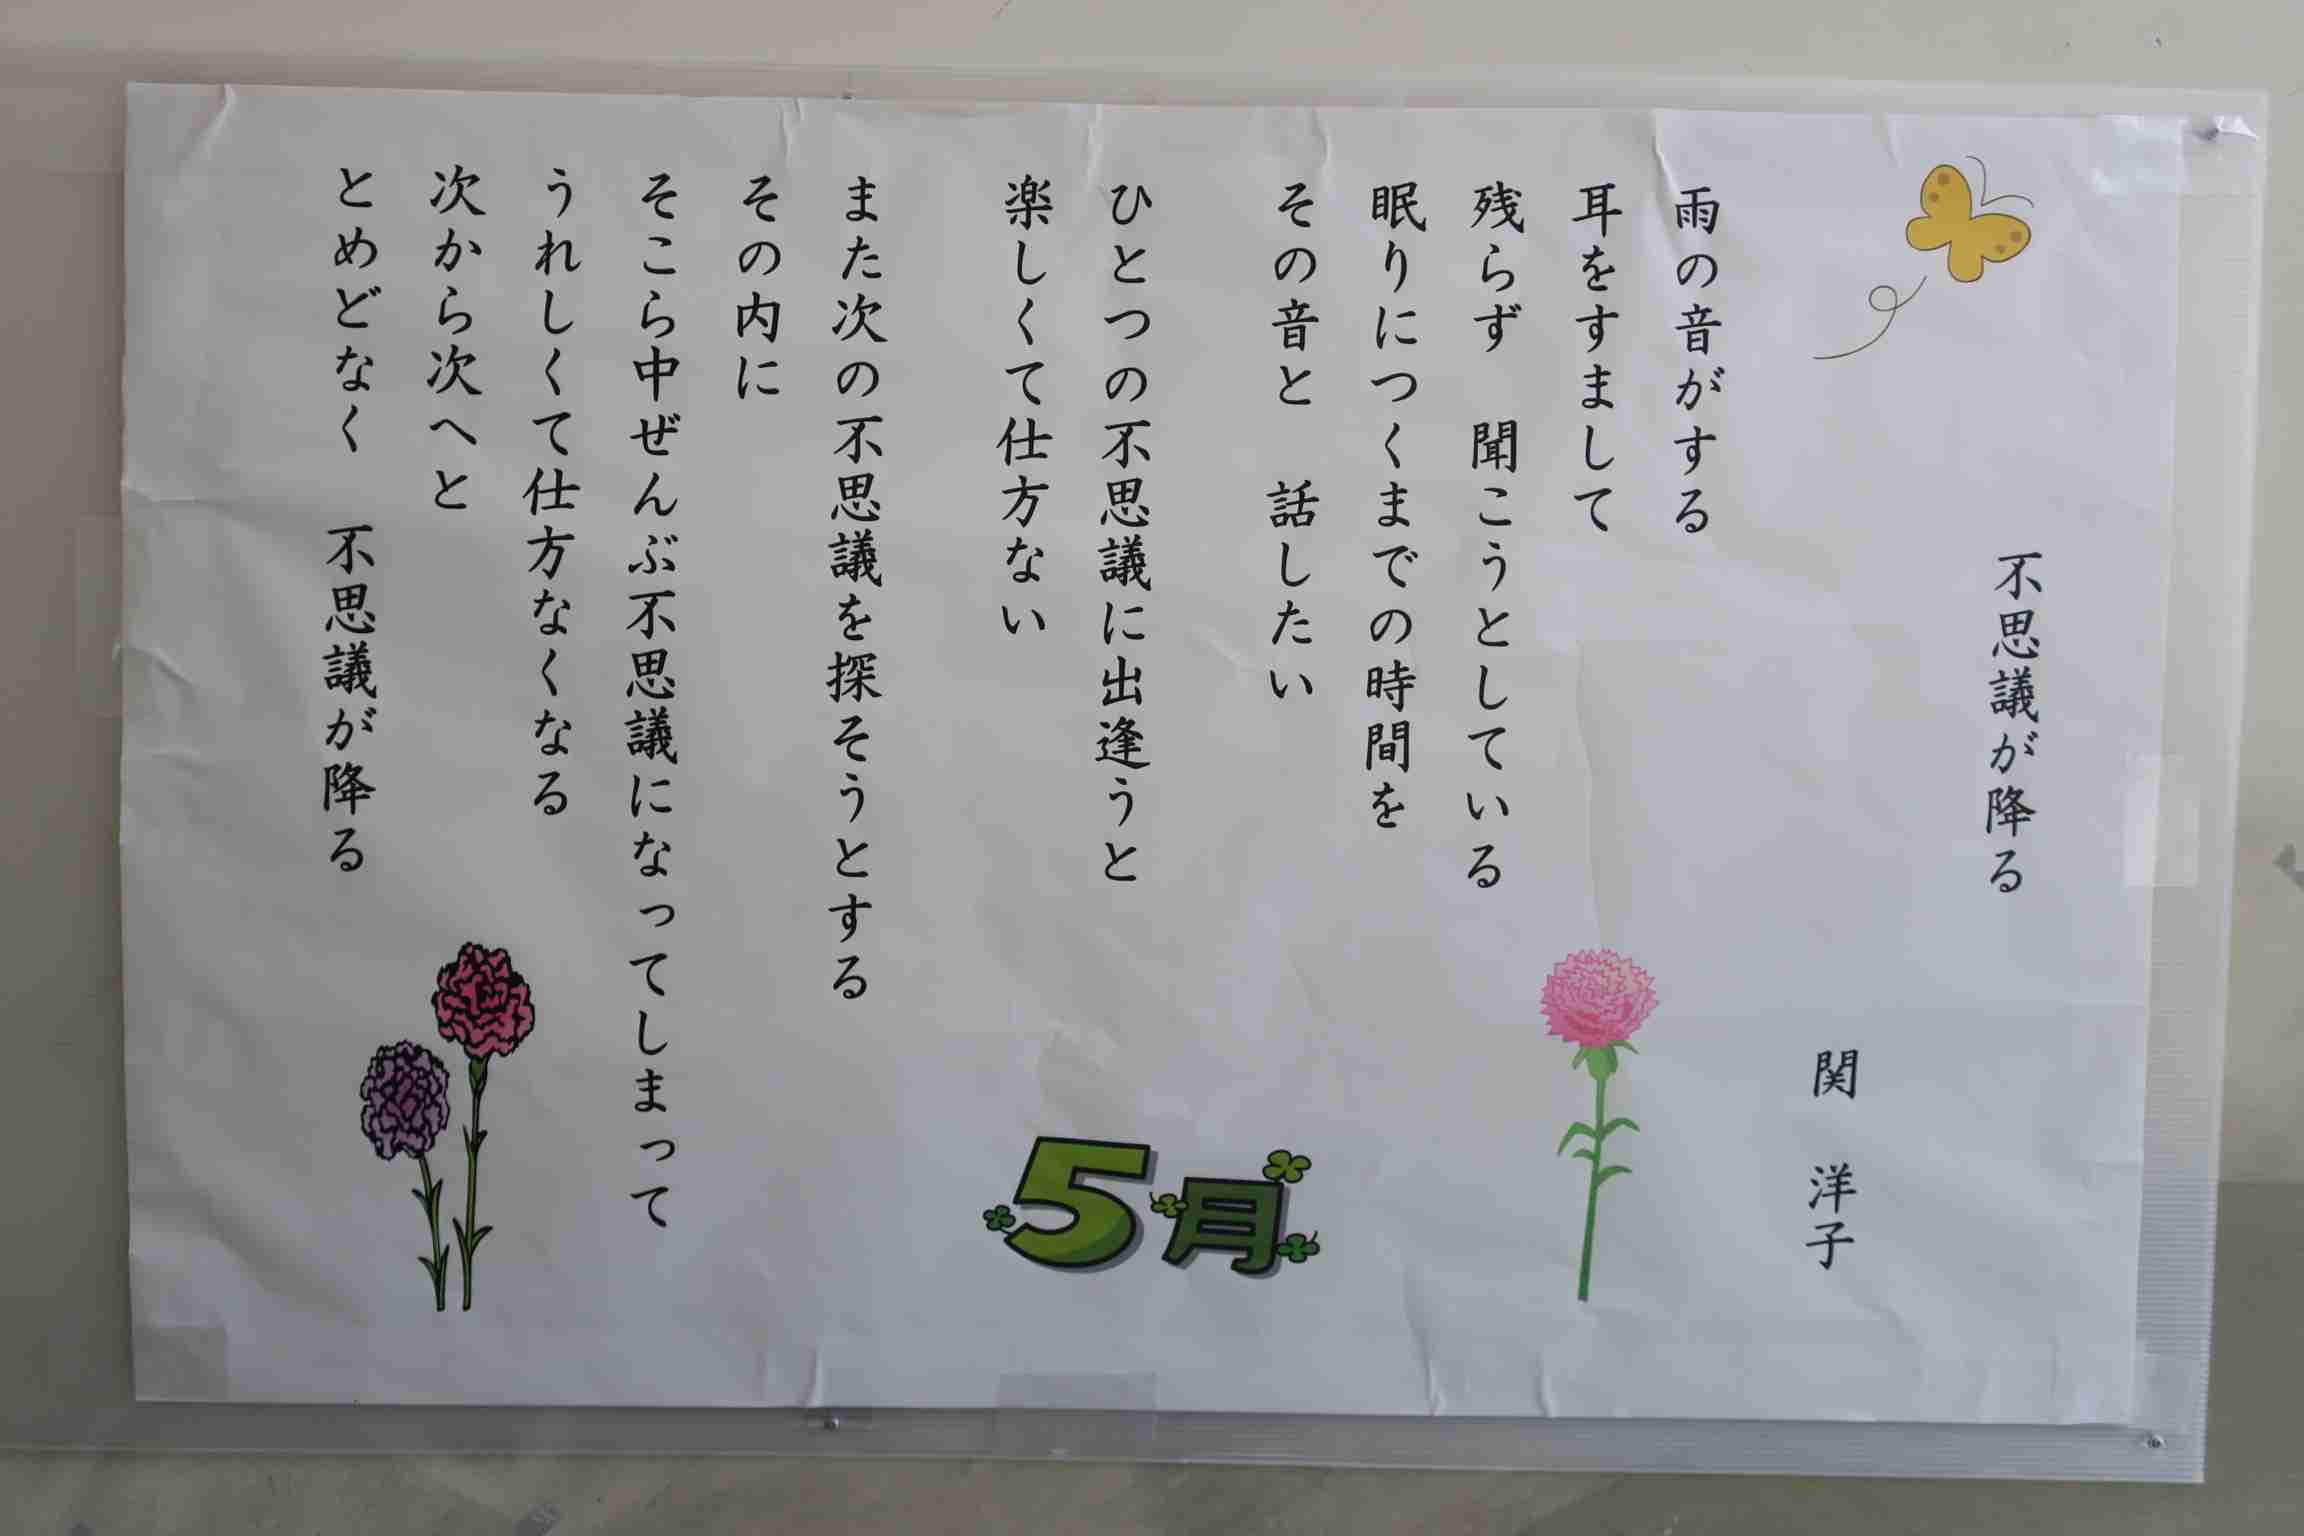 不思議が降る
関　洋子
雨の音がする
耳をすまして
残らず　聞こうとしている
眠りにつくまでの時間を
その音と　話したい
ひとつの不思議に出逢うと
楽しくて仕方ない
また次の不思議を探そうとする
その内に
そこら中ぜんぶ不思議になってしまって
うれしくて仕方なくなる
次から次へと
とめどなく　不思議が降る
5月